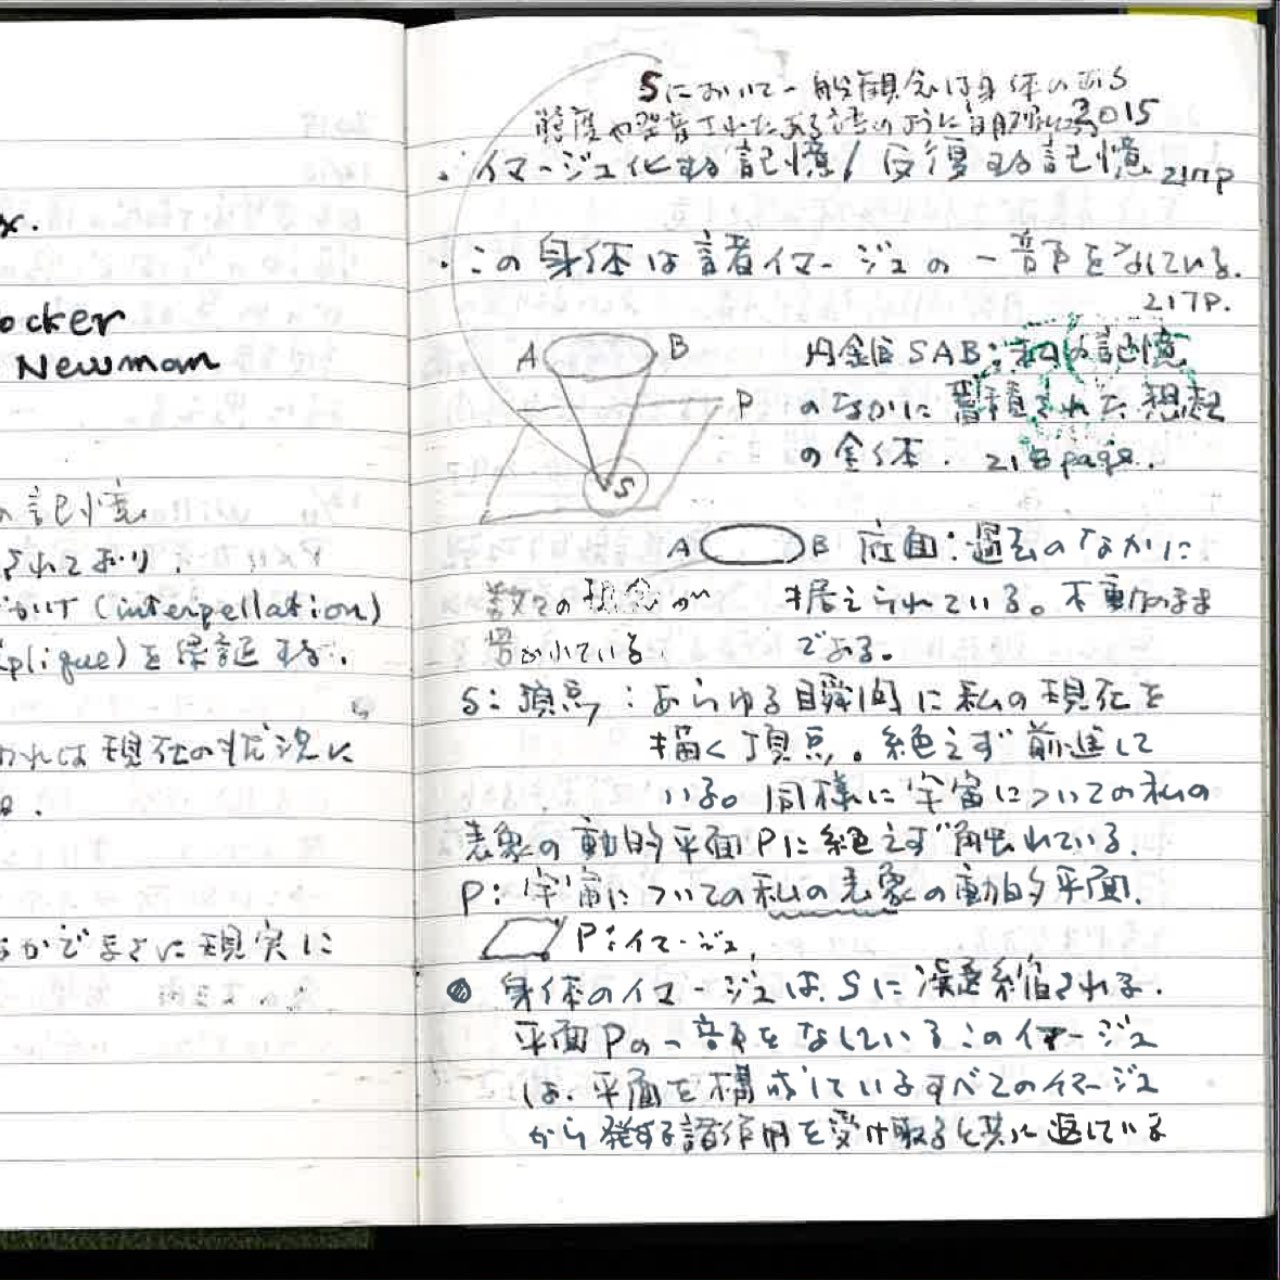 x.
ocker
Newman
の記憶
されており、
かけ (interpellation)
plique) を保証する。
れは現在の状況に
かでまさに現実に
Sにおいて一般観念は身体のある
態度や発音されたある語のように明確に
2015
・イマージュ化する記憶/反復する記憶 217P
・この身体は諸イマージュの一部をなしている。
217P.
A B
P
S
円錐SAB:私の記憶
のなかに蓄積された想起
の全体. 218 page.
A B 底面:過去のなかに
数々の観念が 据えられている。不動のまま
書かれている である。
S:頂点:あらゆる瞬間に私の現在を
描く頂点。絶えず前進して
いる。同様に宇宙についての私の
表象の動的平面Pに絶えず触れている.
P:宇宙についての私の表象の動的平面.
P:イマージュ.
身体のイマージュは、Sに凝縮される.
平面Pの一部をなしているこのイマージュ
は、平面を構成しているすべてのイマージュ
から発する諸作用を受け取ると共に返している